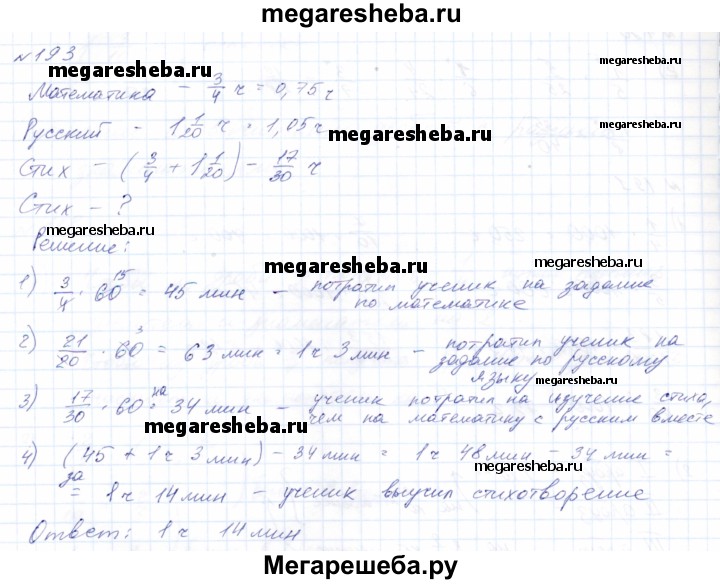 megaresheba.ru
№193
megaresheba.ru
megaresheba.ru
Математика - 3/4 ч = 0,75 ч
Русский - 1 1/20 ч = 1,05 ч
megaresheba.ru
megaresheba.ru
Стих - (3/4 + 1 1/20) - 17/30 ч
Стих - ?
megaresheba.ru
Решение:
megaresheba.ru
1) 3/4 · 60 15 = 45 мин - потратил ученик на задание
по математике
2) 21/20 · 60 3 = 63 мин = 1 ч 3 мин - потратил ученик на
задание по русскому
языку
megaresheba.ru
3) 17/30 · 60 = на 34 мин - ученик потратил на изучение стиха,
чем на математику с русским вместе
megaresheba.ru
4) (45 + 1 ч 3 мин) - 34 мин = 1 ч 48 мин - 34 мин =
megaresheba.ru
за
= 1 ч 14 мин - ученик выучил стихотворение
Ответ: 1 ч 14 мин
megaresheba.ru
Мегарешеба.ру